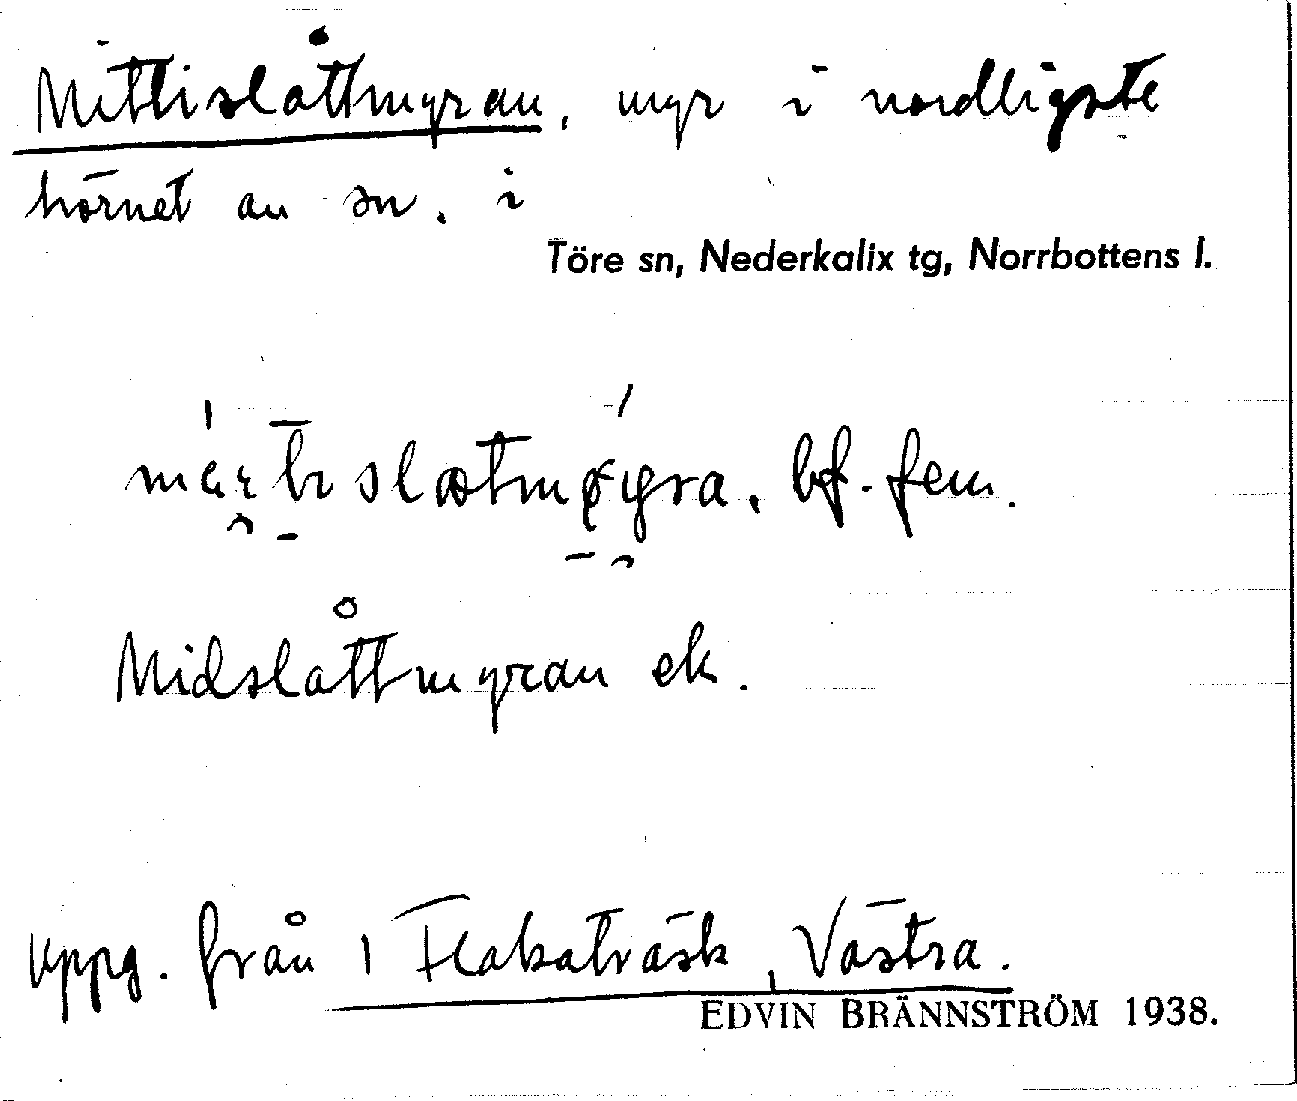 Mittislåttmyran, myr i nordligste
hörnet av sn. i
Töre sn, Nederkalix tg, Norrbottens l.
bf. fem.
Midslåttmyran ek.
Uppg. från 1 Flakaträsk, Västra.
EDVIN BRÄNNSTRÖM 1938.